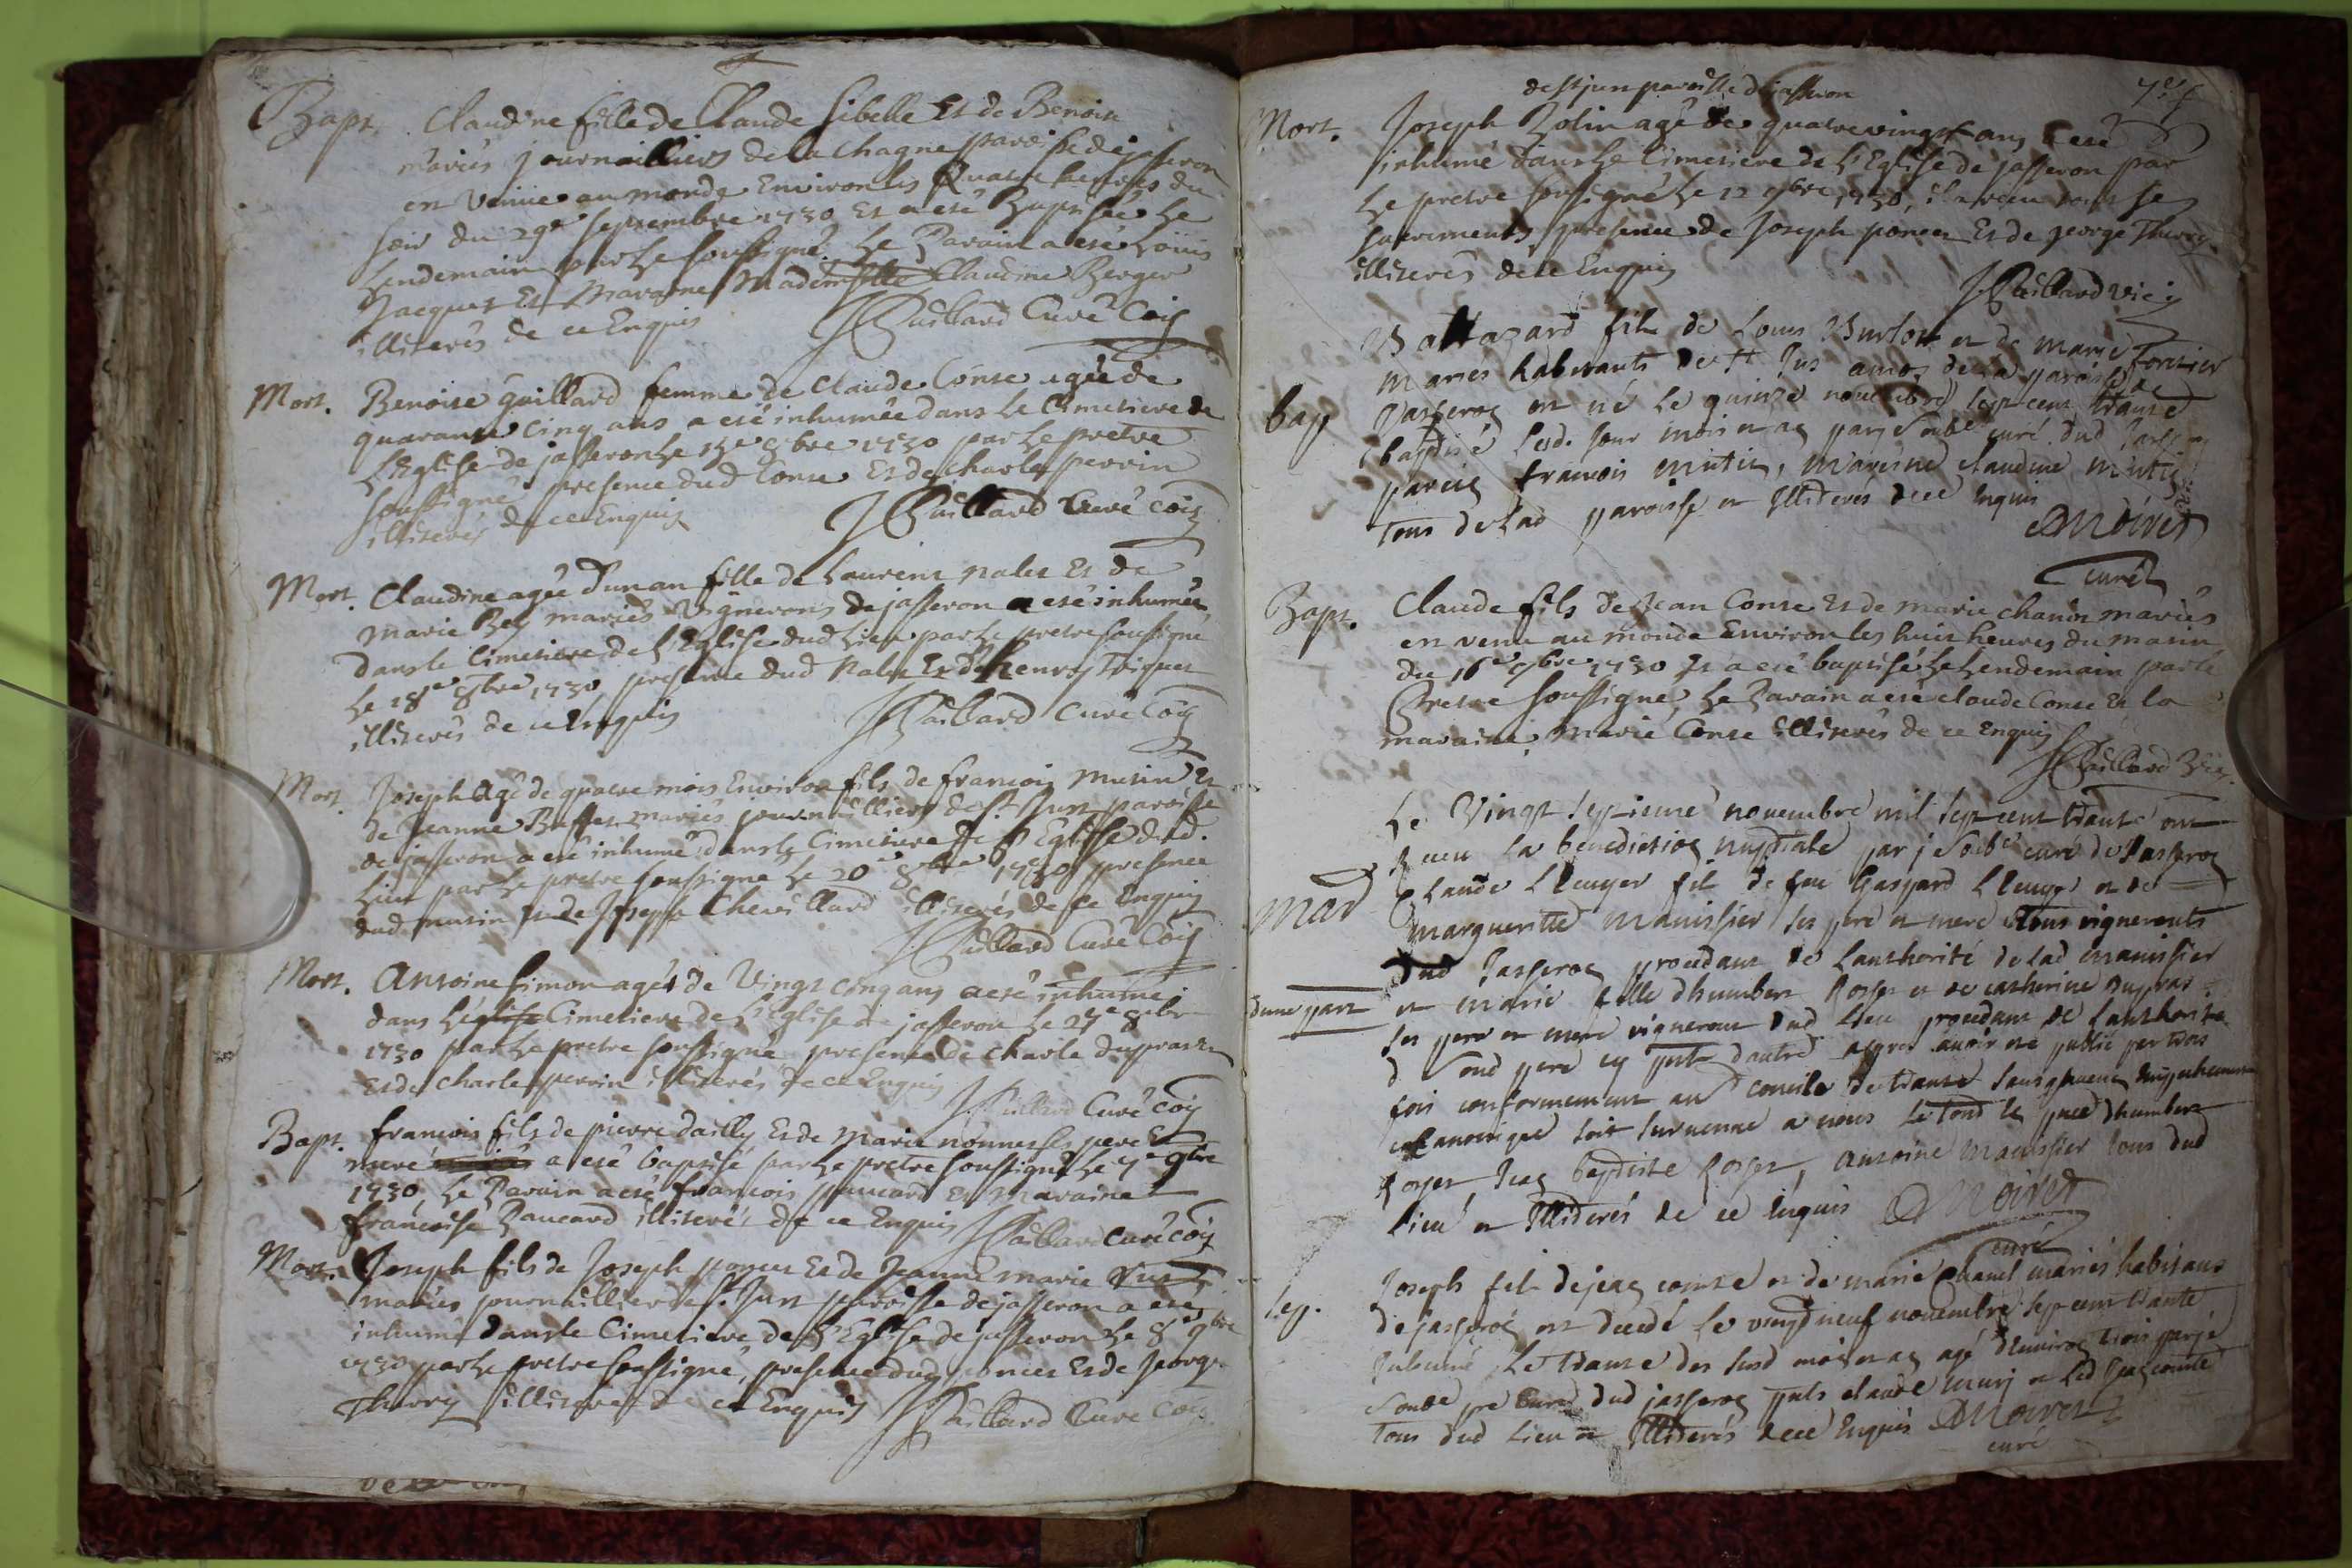 Bapt. Claudine fille de Claude Sibelle Et de Benoite
mariés journailliers de la Chagne paroisse de jasseron
est venüe au monde Environ les Quatre heures du
soir du 29e septembre 1730 Et a eté Baptisée le
lendemain par le soussigné. Le Parain a eté Loüis
Jacquet Et Maraine Claudine Berger
illiterés de ce Enquis J Paillard Curé Cõis
Mort. Benoite guillard femme de Claude Conte agée de
quarante cinq ans a eté inhumée dans le Cimetiere de
L'Eglise de jasseron le 8bre 1730 par le pretre
soussigné presence dud Conte Et de charle perrin
illiterés de ce Enquis J Paillard Curé cõis
Mort. Claudine agée d'un an fille de Laurent palet Et de
marie Bey mariés Vignerons de jasseron a eté inhumée
dans le Cimetiere de l'Eglise dud Lieu par le pretre soussigné
le 18e 8bre 1730 presence dud Palet Et de henry
illiterés de ce Enquis J Paillard Curé Cõis
Mort. Joseph Agé de quatre mois Environ fils de francois mutin Et
de Jeanne mariés journailliers de St. Just paroisse
de jasseron a eté inhumé dans le Cimetiere de l'Eglise dud.
Lieu par le pretre soussigné le 20e 8bre 1730 presence
dud mutin Et de Joseph Chevillard illiterés de ce Enquis
J Paillard Curé Cõis
Mort. Antoine Simon agé de Vingt cinq ans a eté inhumé
dans l'église Cimetiere de L'Eglise de jasseron le 27e 8bre
1730 par le pretre soussigné presence de charle dupras
Et de charle perrin illiterés de ce Enquis
J Paillard Curé cõis
Bapt. francois fils de pierre dailly Et de Marie nonnes ses pere Et
mere a eté baptisé par le pretre soussigné le 7e 9bre
1730 le Parain a eté francois paucard Et maraine
francoise Paucard illiterés de ce Enquis J Paillard Curé cõis
Mort. Joseph fils de Joseph poncet Et de Jeanne marie
mariés journailliers de St. Just paroisse de jasseron a eté
inhumé dans le Cimetiere de L'Eglise de jasseron le 8e 9bre
1730 par le pretre soussigné, presence dud poncet Et de george
Thierry illiterés de ce Enquis J Paillard Curé Cõis
de st just paroisse de jasseron
Mort. Joseph Bolin agé de quatrevingt ans a eté
inhumé dans le Cimetiere de L'Eglise de jasseron par
le pretre soussigné le 12 9bre 1730, il a receu tous ses
sacrements, presence de Joseph poncet Et de george Thierry
illiterés de ce Enquis
J Paillard vic
Baltazard fils de Louis Burlot et de marie
mariés habitants de St Just de la paroisse de
bap Jasseron est né le quinze novembre sept cent trante
Et baptisé led. jour mois et an par je soubé curé dud Jasseron
parein francois mutin, mareine claudine mutin
tous de lad paroisse et Illiterés de ce enquis
Moiret
curé
Bapt. Claude fils de Jean Conte Et de marie chanel mariés
est venu au monde Environ les huit heures du matin
du 16e 9bre 1730 Et a eté baptisé le Lendemain par le
Pretre soussigné, le Parain a eté claude Conte Et la
maraine, Marie Conte illiterés de ce Enquis
J Paillard Vic.
Le Vingt septieme novembre mil sept cent trante ont
Receu la benediction nuptiale par je soubé curé de Jasseron
mar Claude fils de feu Gaspard et de
margueritte Manissier ses pere et mere tous vignerons
dud Jasseron procedant de Lauthorité de lad manissier
dune part et marie fille dhumbert Rosset et de catherine dupras
ses pere et mere vignerons dud Lieu procedant de Lauthorité
de sond pere dautre apres avoir eté publié par trois
fois conformement au concile de trante sans
canonique soit survenue a nous Le tout en pnce dhumbert
Rosset Jean baptiste Rosset, antoine manissier tous dud
Lieu et Illiterés de ce enquis Moiret
curé
sep. Joseph fils de jean conte et de marie chanel mariés habitans
de jasseron est decedé le vingt neuf novembre sept cent trante
Inhumé Le trante des susd mois et an agé denviron trois par je
soubé pre Curé dud jasseron pnts claude et led jean conte
tous dud Lieu et Illiterés de ce Enquis Moiret
curé